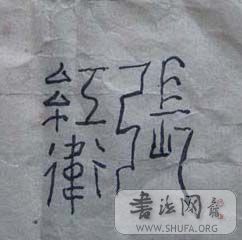 張
紅
衛
书法网
WWW.SHUFA.ORG